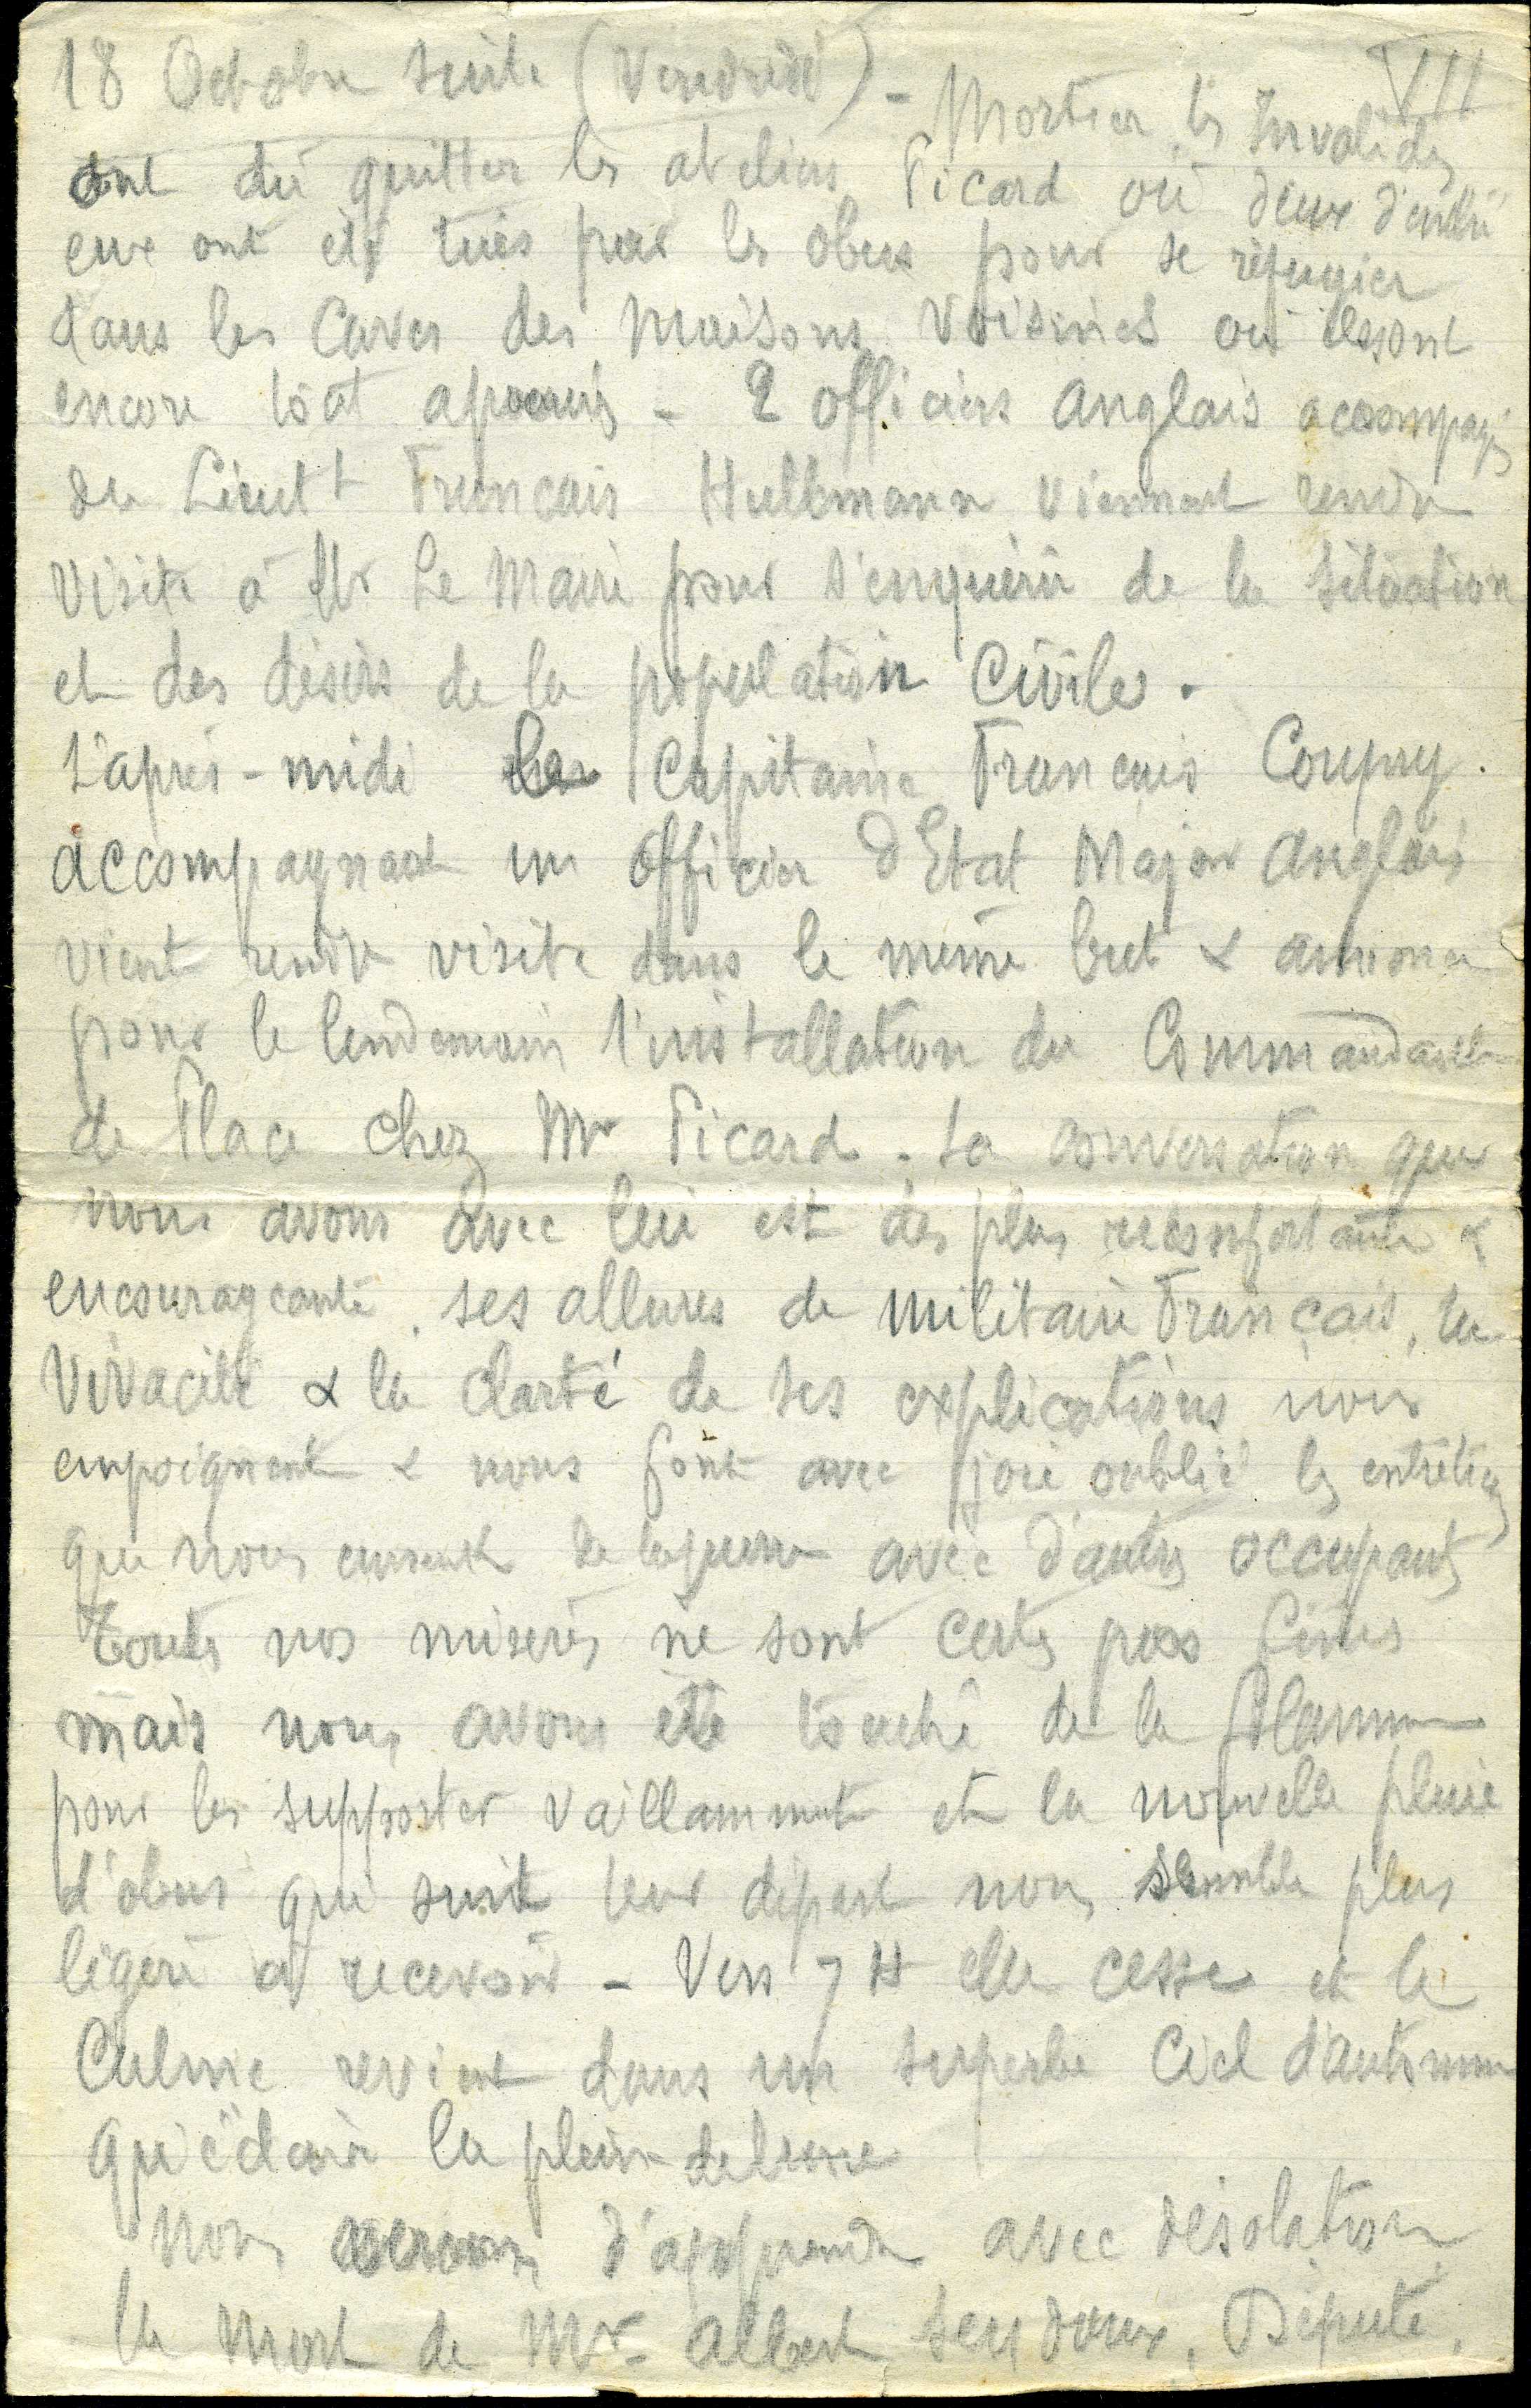 VII
18 Octobre suite (Vendredi) - Mortier, les Invalides
ont dû quitter les ateliers Picard où deux d'entre
eux ont été tués par les obus pour se réfugier
dans les Caves des Maisons Voisines où ils sont
encore tout apeurés - 2 officiers anglais accompagnés
du Lieutt Français Hullmann viennent rendre
visite à Mr Le Maire pour s'enquérir de la situation
et des désirs de la population Civile.
L'après-midi le Capitaine Français Coupay
accompagnant un officier d'Etat Major Anglais
vient rendre visite dans le même but & annonce
pour le lendemain l'installation du Commandant
de Place chez Mr Picard. La conversation que
nous avons avec lui est des plus réconfortante &
encourageante. ses allures de militaire Français, la
Vivacité & la clarté de ses explications nous
empoignent & nous font avec joie oublier les entretiens
que nous avec d'autres occupants
Toutes nos misères ne sont certes pas finies
mais nous avons été touché de la flamme
pour les supporter vaillamment et la nouvelle pluie
d'obus qui suit leur départ nous semble plus
légère à recevoir - Vers 7 H elle cesse et le
Calme revient dans un superbe Ciel d'automne
qu'éclaire la pleine lune
Nous venons d'apprendre avec désolation
la Mort de Mr Albert Seydoux, Député,